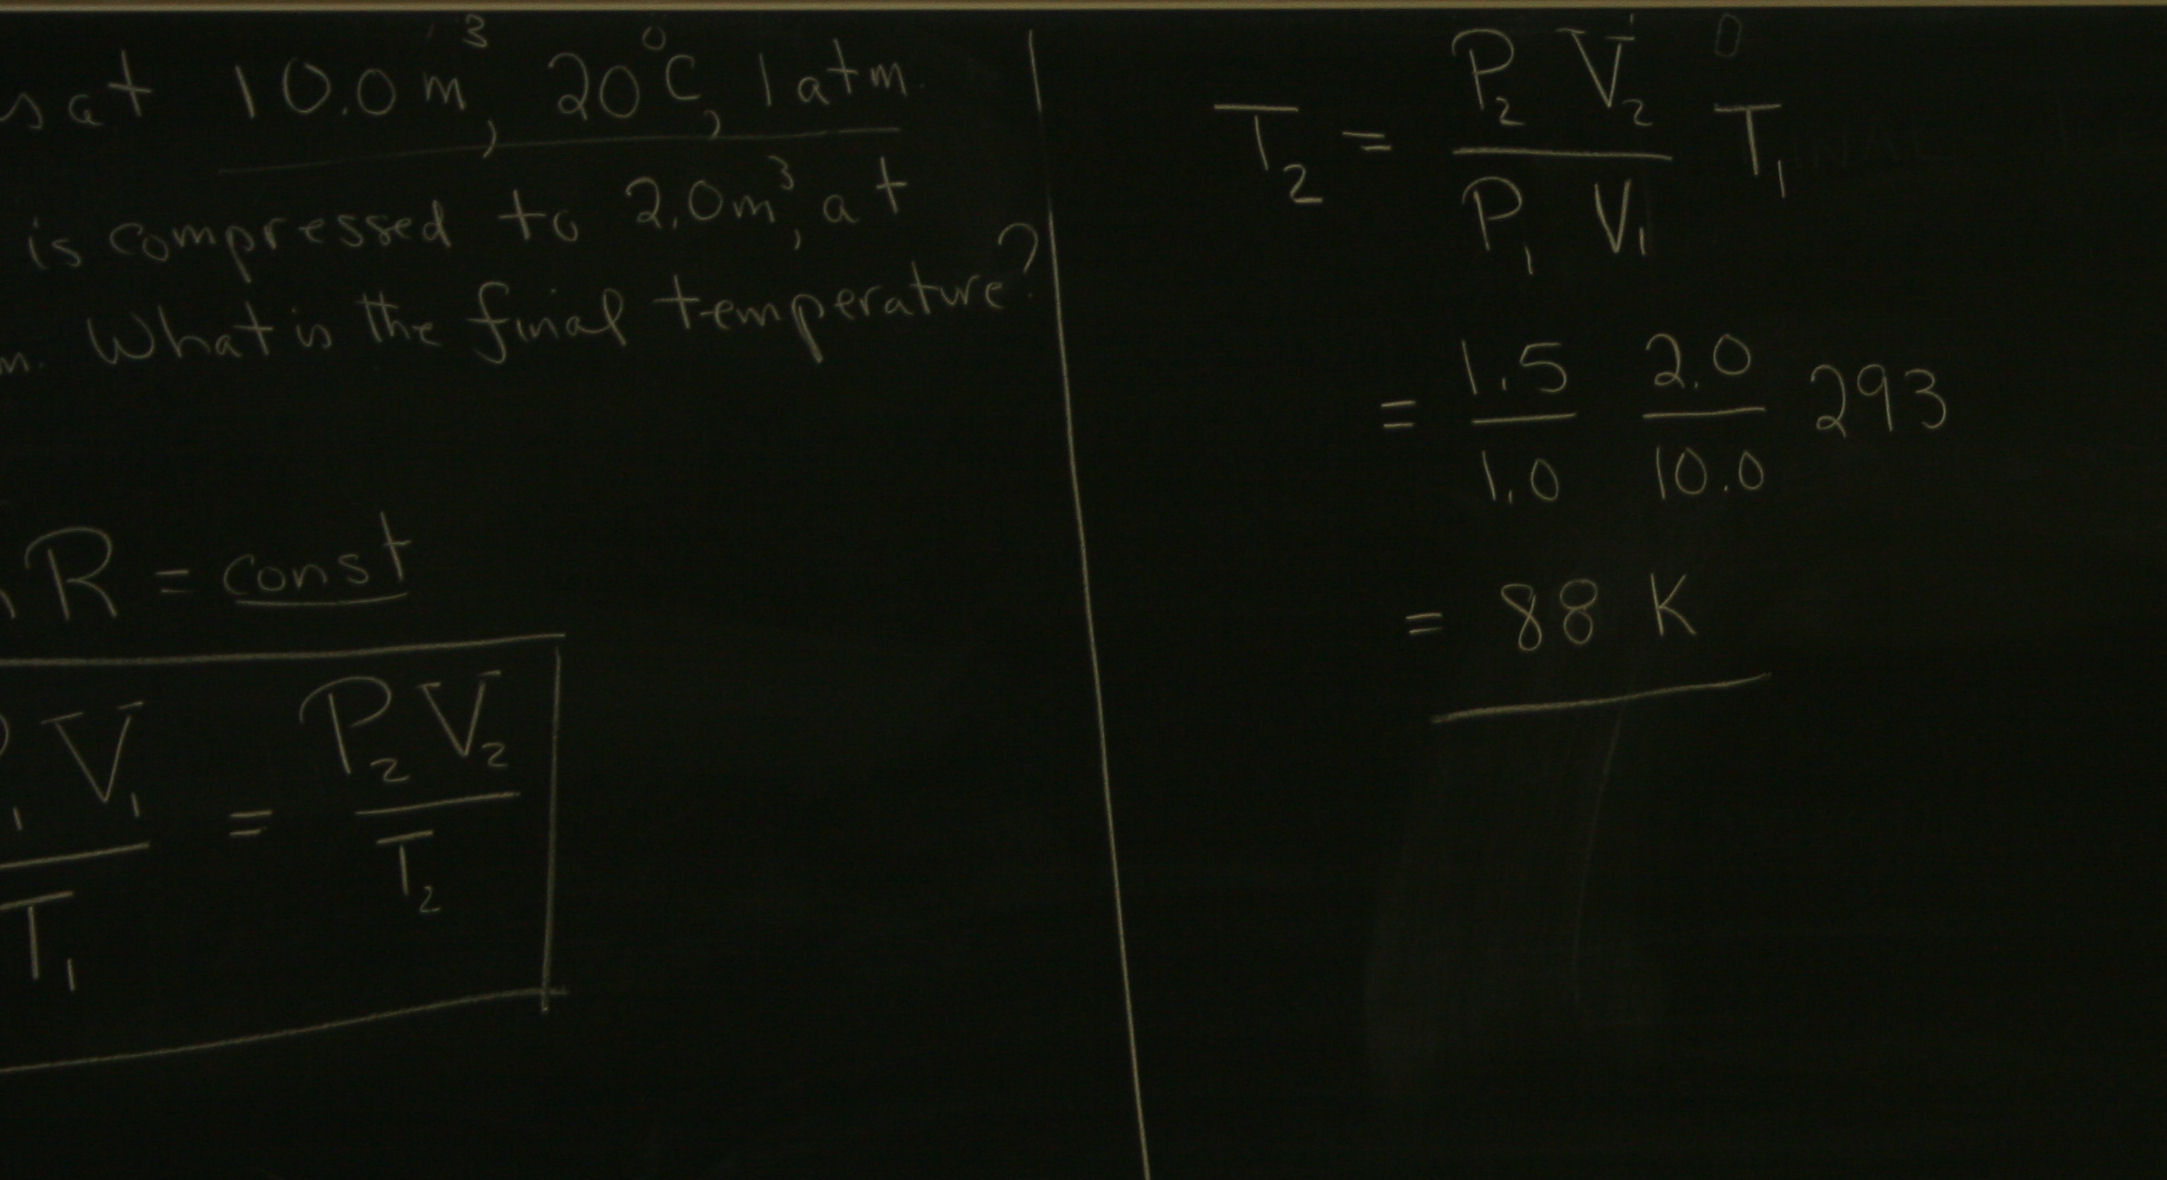 at 10.0 m³, 20°C, 1 atm.
is compressed to 2.0 m³, at
What is the final temperature?
R = const
V₁ = P₂ V₂
T₁ T₂
T₂ = P₂ V₂ T₁
P₁ V₁
= 1.5 2.0 293
1.0 10.0
= 88 K